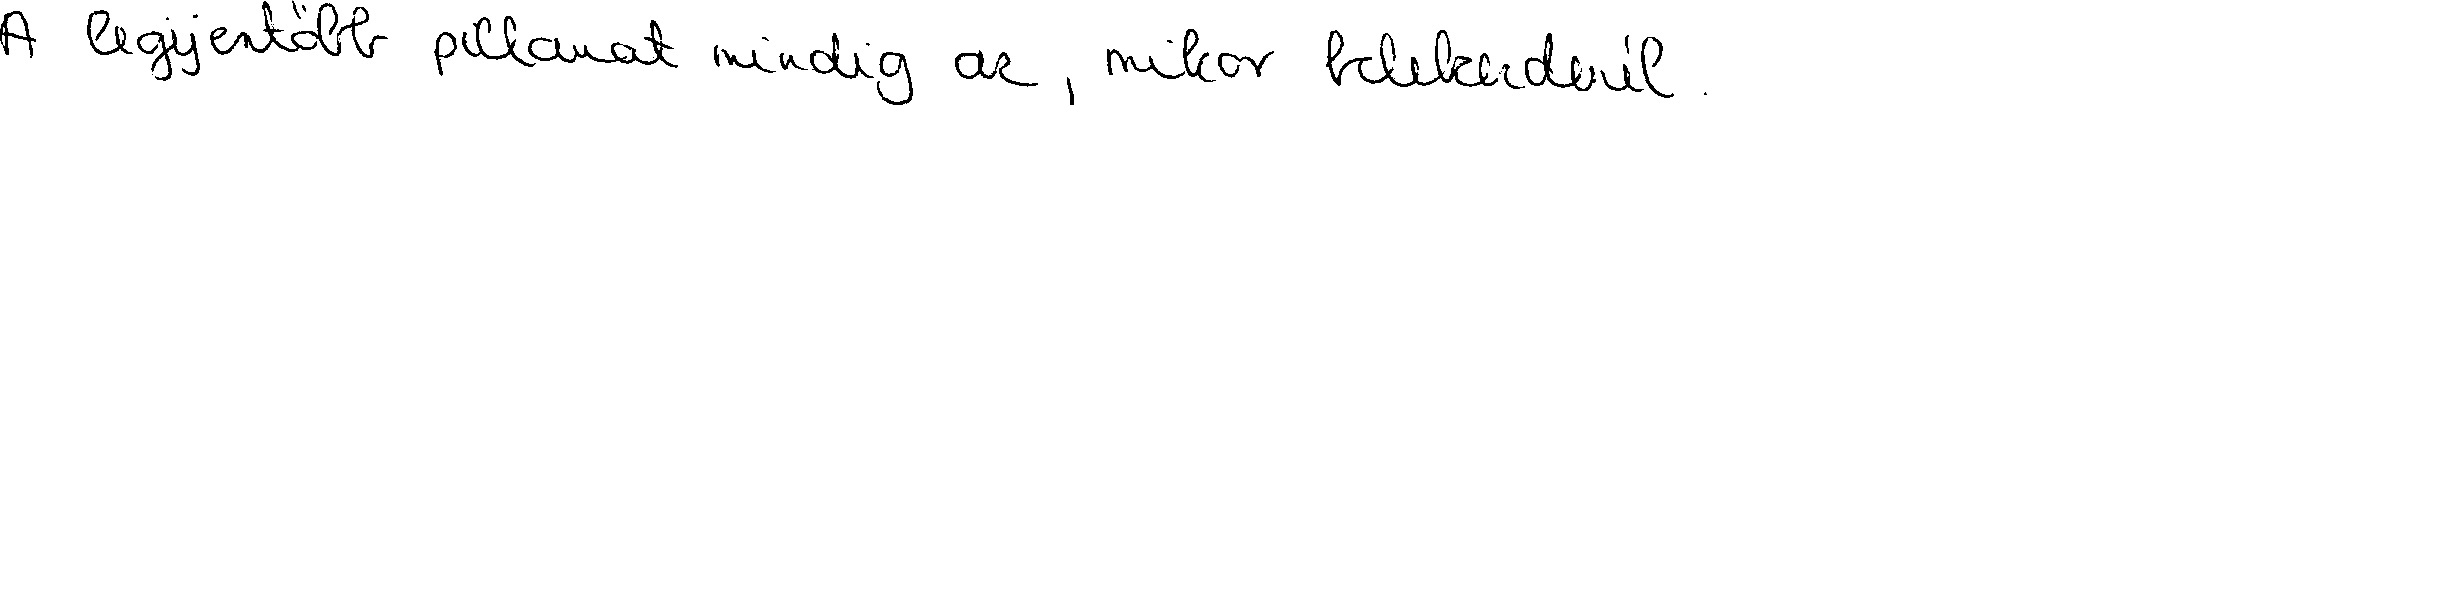 A legijentőbb pillanat mindig az, mikor belekezdenél.